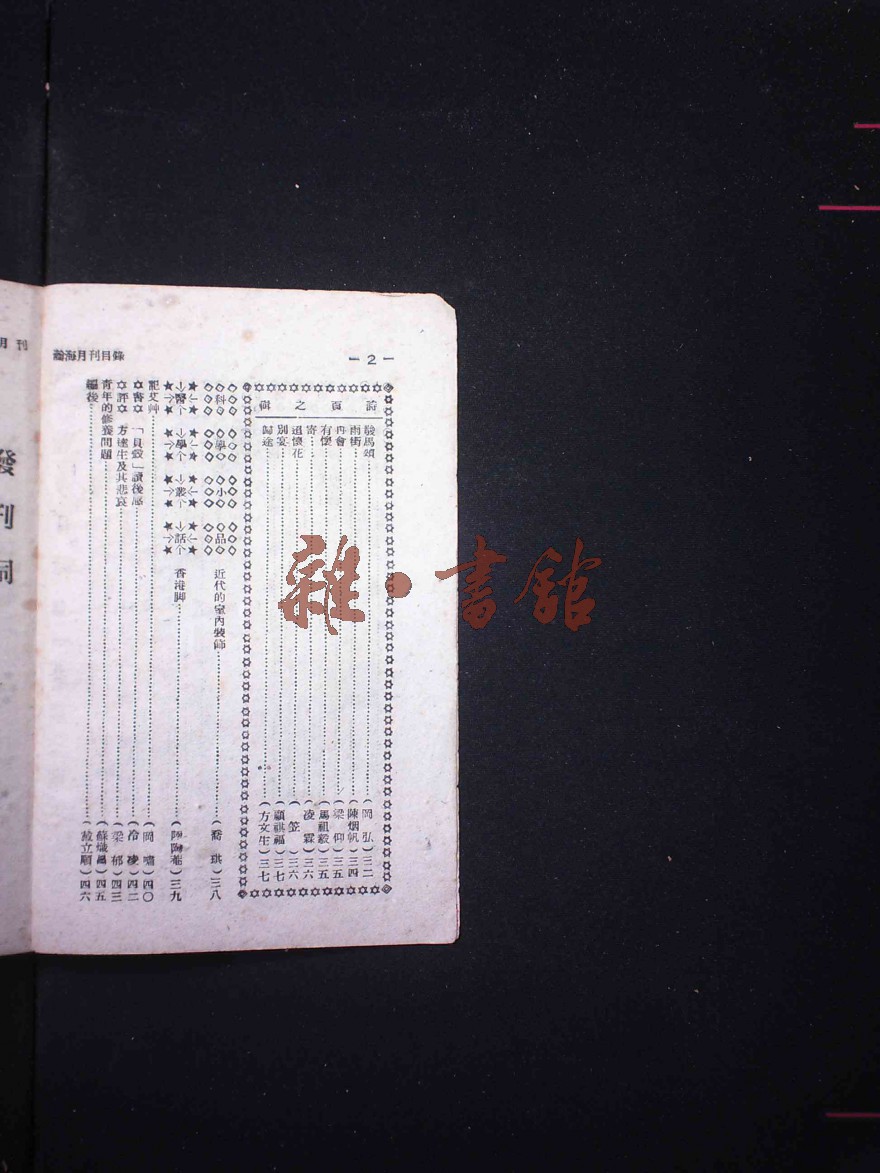 瀚海月刊目錄
— 2 —
詩頁之輯
駿馬頌………(岡弘)三二
雨街………(陳烟帆)三四
再會………(梁仰)三五
有懷………(馬祖毅)三五
寄………(凌霖)三六
追懷花………(笠)三六
別宴………(顧祺福)三七
歸途………(方文生)三七
科學小品 近代的室內裝飾………(喬琪)三八
醫學叢話 香港脚………三九
記艾艸………(岡嘯)四〇
書評 「貝殼」讀後感………(冷凌)四二
方達生及其悲哀………(梁郁)四三
青年的修養問題………四五
編後………(戴立顯)四六
月刊
發刊詞
雜·書館